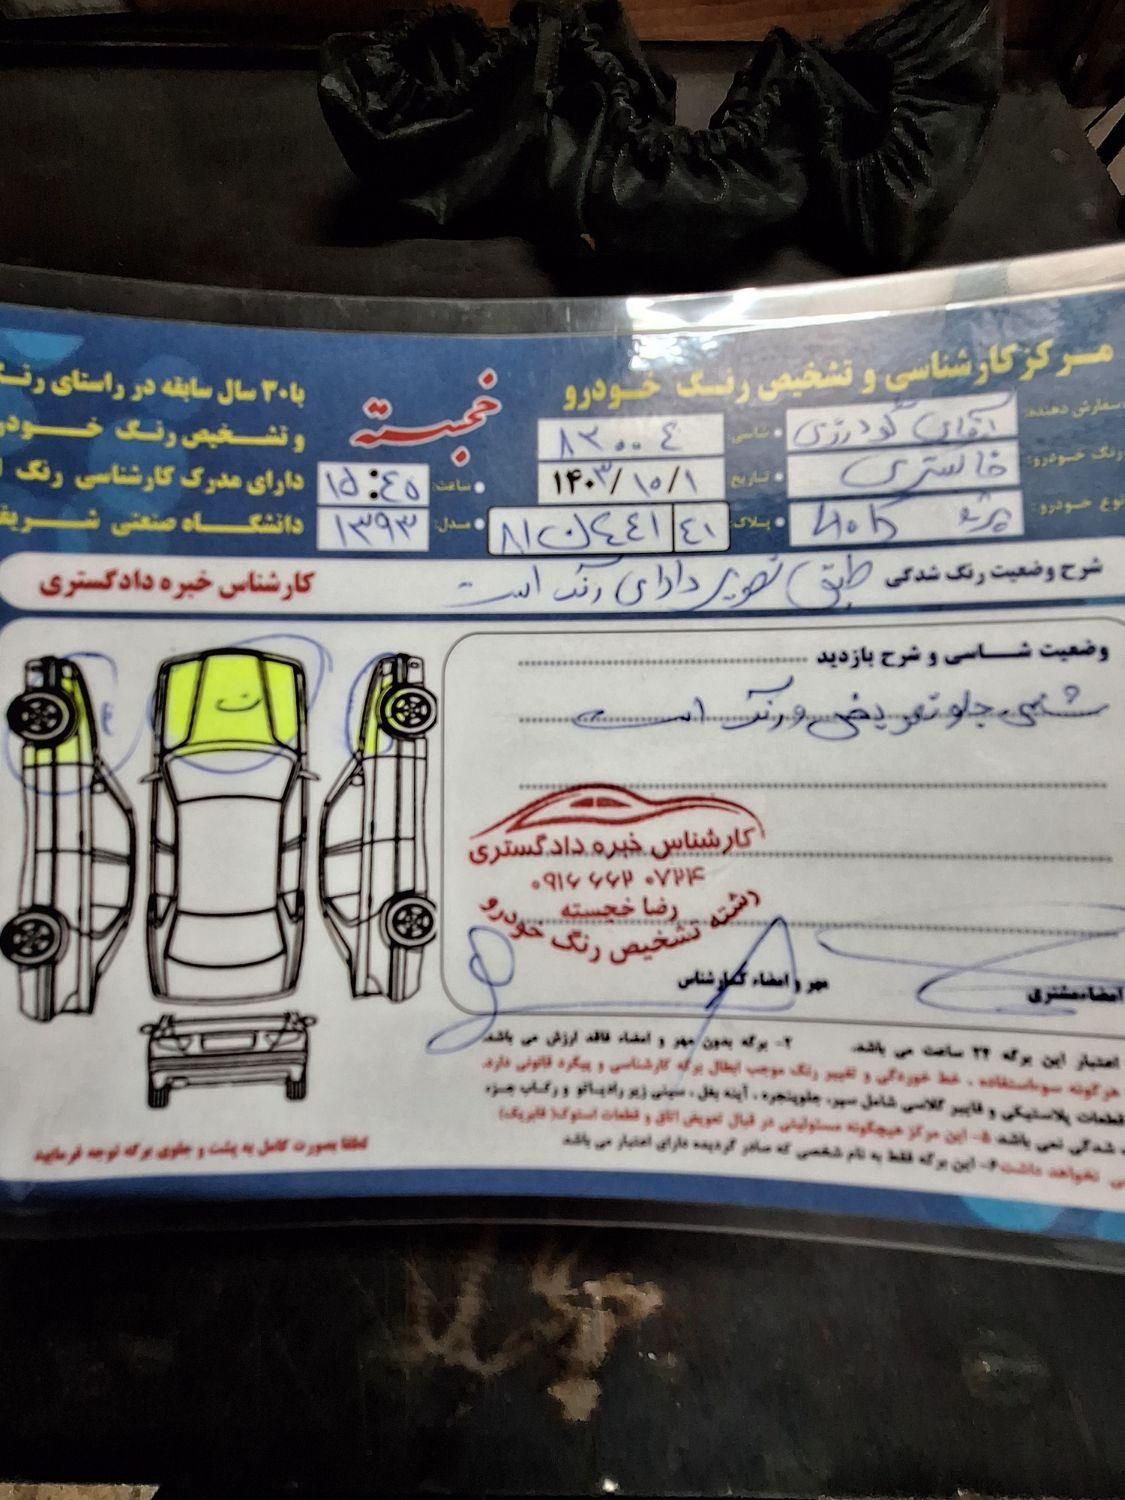 مرکز کارشناسی و تشخیص رنگ خودرو
خجسته
با ۳۰ سال سابقه در راستای رنگ
و تشخیص رنگ خودرو
دارای مدرک کارشناسی رنگ
دانشگاه صنعتی شریف
سفارش دهنده: آقای گودرزی
شاسی: ۸۳۰۰۰۴
رنگ خودرو: خاکستری
تاریخ: ۱۴۰۳/۱۰/۱
ساعت: ۱۵:۴۵
نوع خودرو: پژو ۴۰۵
پلاک: ۴۱ ۴۴۱ ن ۸۱
مدل: ۱۳۹۳
شرح وضعیت رنگ شدگی طبق تصویر دارای رنگ است
کارشناس خبره دادگستری
وضعیت شاسی و شرح بازدید
شاسی جلو تعویض و رنگ است
ت
کارشناس خبره دادگستری
۰۹۱۶ ۶۶۲ ۰۷۲۴
رضا خجسته
رشته تشخیص رنگ خودرو
مهر و امضاء کارشناس
امضاء مشتری
اعتبار این برگه ۲۴ ساعت می باشد.
۲- برگه بدون مهر و امضاء فاقد ارزش می باشد.
هرگونه سوءاستفاده ، خط خوردگی و تغییر رنگ موجب ابطال برگه کارشناسی و پیگرد قانونی دارد.
قطعات پلاستیکی و فایبر گلاسی شامل سپر، جلوپنجره ، آینه بغل ، سینی زیر رادیاتور و رکاب جزء
شدگی نمی باشد ۵- این مرکز هیچگونه مسئولیتی در قبال تعویض اتاق و قطعات استوک( فابریک)
نخواهد داشت ۶- این برگه فقط به نام شخصی که صادر گردیده دارای اعتبار می باشد
لطفا بصورت کامل به پشت و جلوی برگه توجه فرمایید